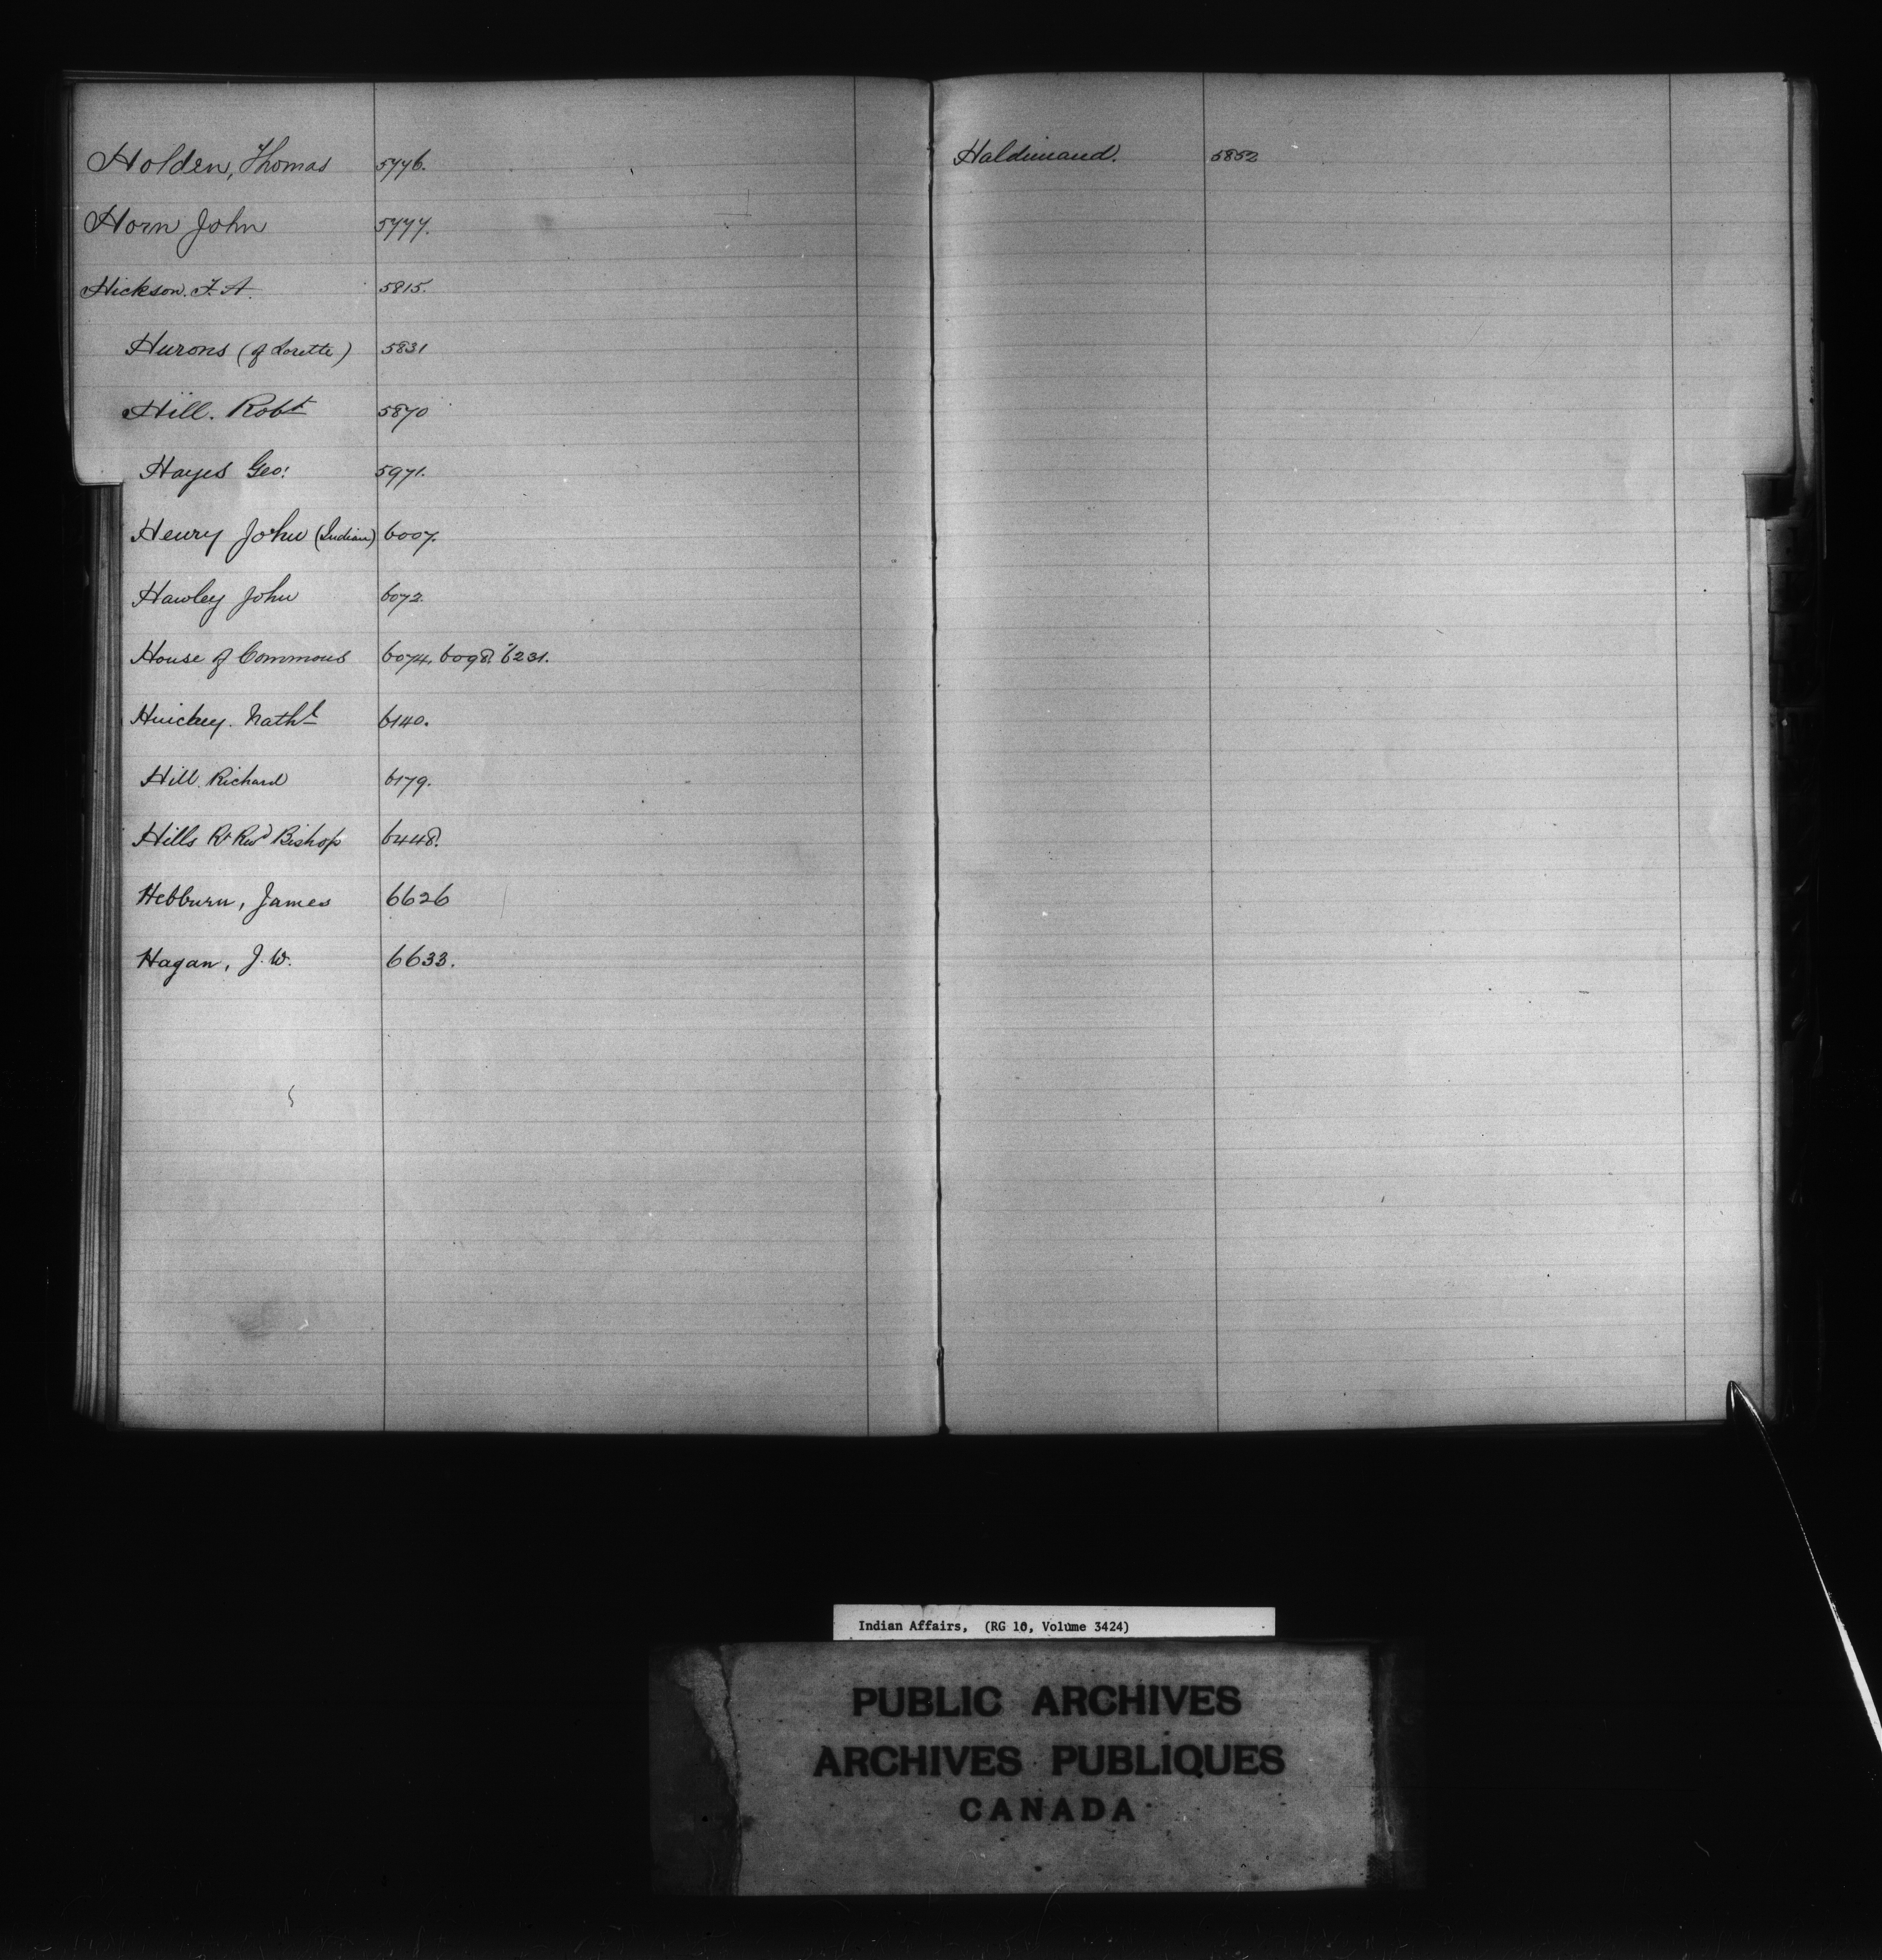 Holden, Thomas 5776.
Horn John 5777.
Hickson. F. A. 5815.
Hurons (of Lorette) 5831
Hill. Robt 5870
Hayes Geo: 5971.
Henry John (Indian) 6007.
Hawley John 6072.
House of Commons 6074. 6098. 6231.
Hinckey. Nathl 6140.
Hill. Richard 6179.
Hills Rt Revd Bishop 6448.
Hebburn, James 6626
Hagan, J. W. 6633.
Haldimand. 5852
Indian Affairs, (RG 10, Volume 3424)
PUBLIC ARCHIVES
ARCHIVES PUBLIQUES
CANADA